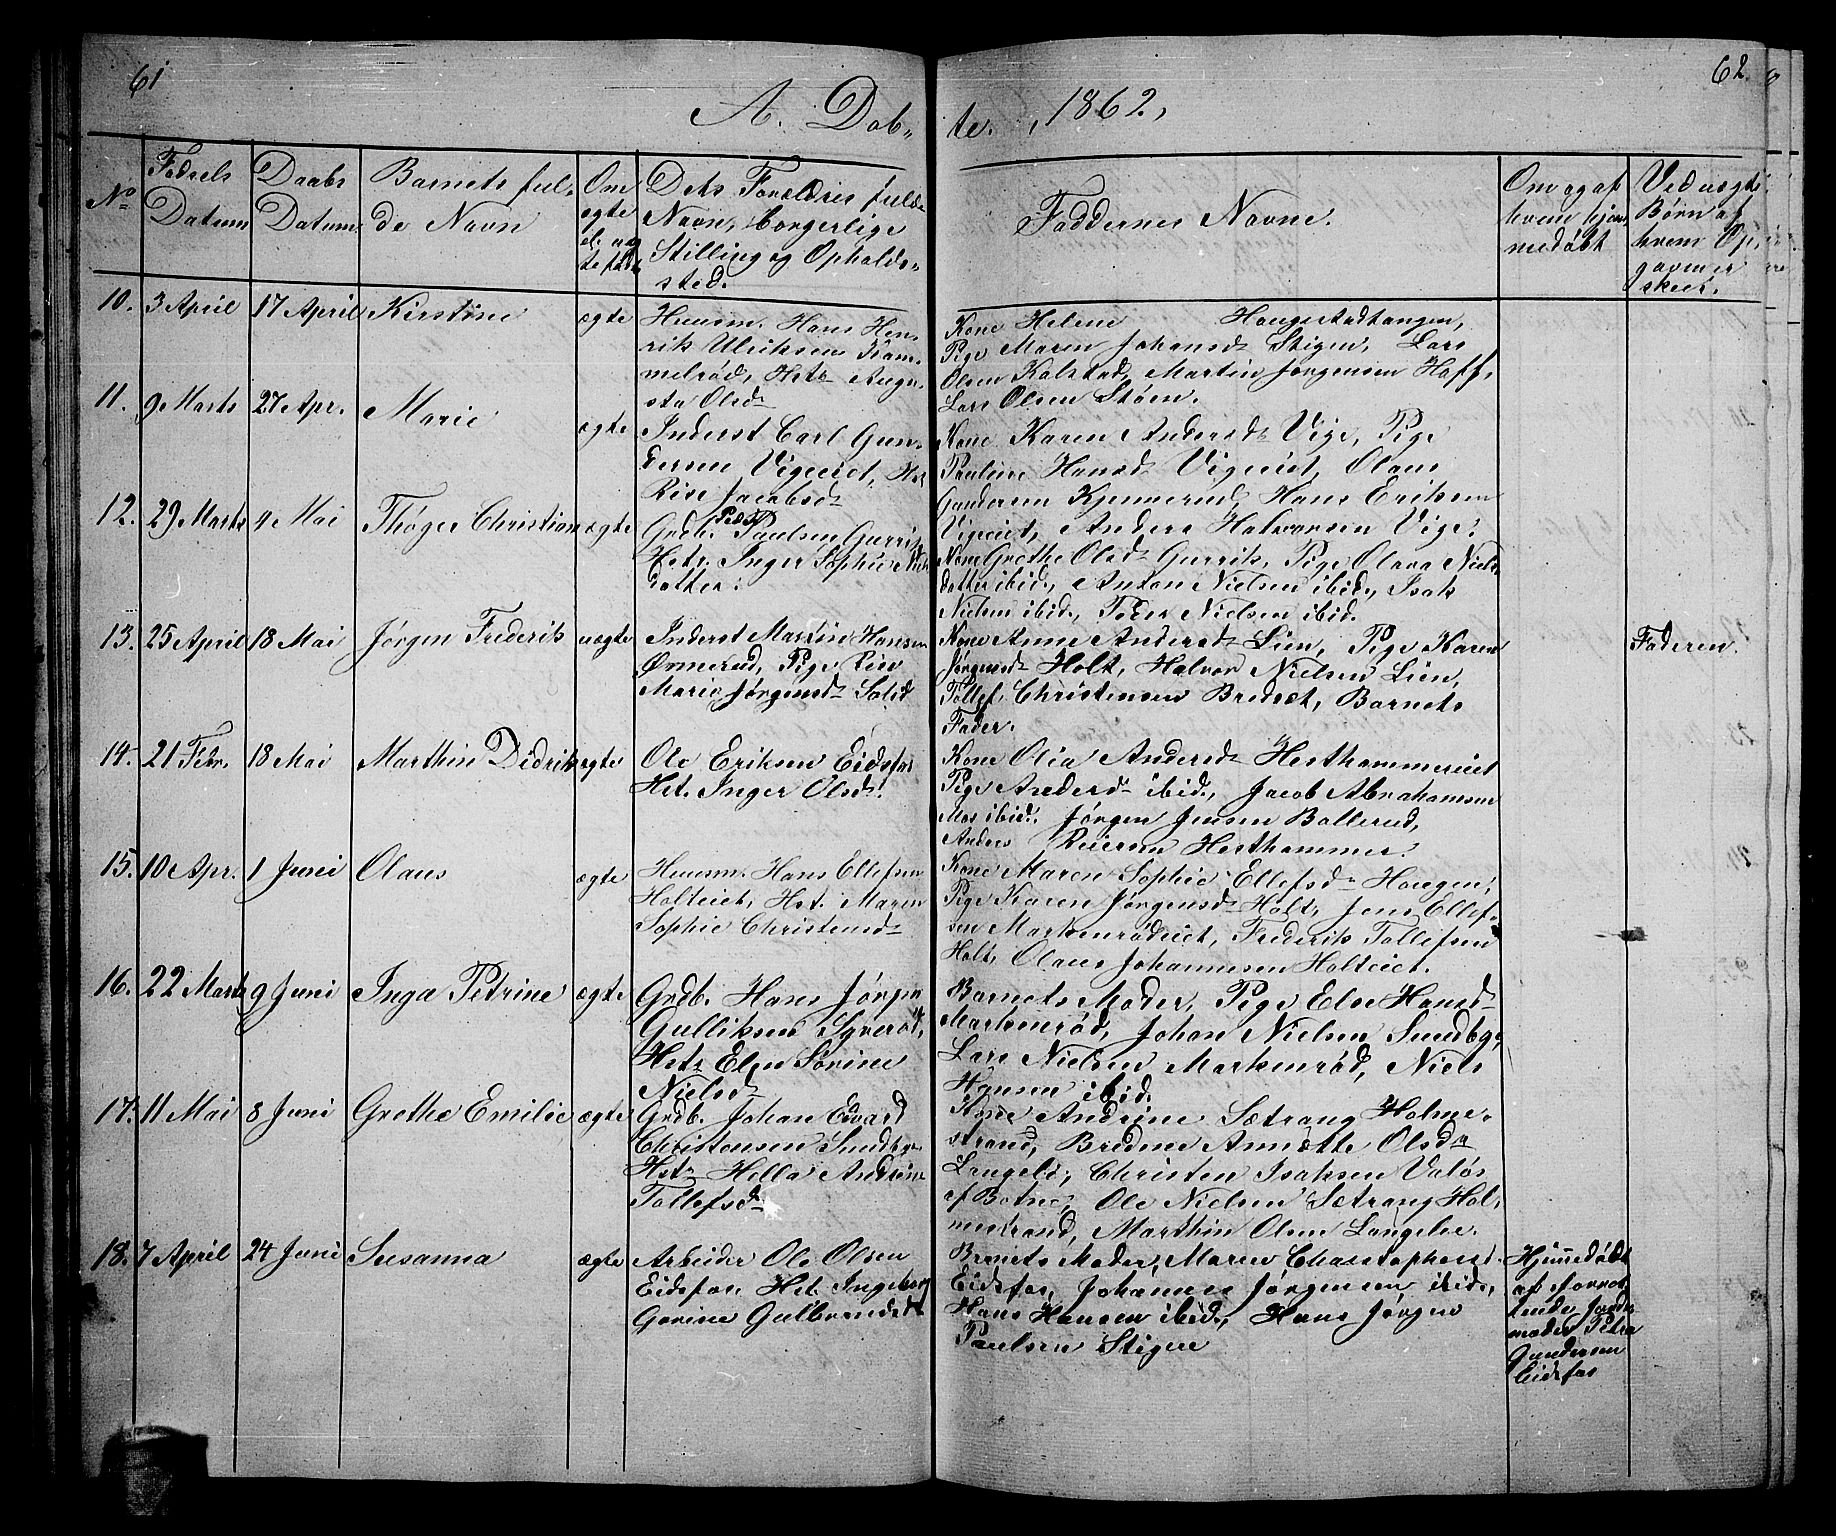 61
62
A. Døb-
te. , 1862,
No
Fødsels
Datum
Daabs
Datum
Barnets ful-
de Navn
Om
ægte
el. uæg-
te født
Dets Forældres fulde
Navn, borgerlige
Stilling og Opholds-
sted.
Faddernes Navne.
Om og af
hvem hjem-
medøbt
Ved uægte
Børn af
hvem Op-
gaven er
skeet.
10. 3 April 17 April Kirstine ægte
Huusm. Hans Hen-
rik Ulriksen Kam-
melrød, Hst. Augu-
sta Olsd.
Kone Helene Haugestadtangen,
Pige Maren Johansd. Stigen, Lars
Olsen Kalstad, Martin Jørgensen Hoff,
Lars Olsen Støen.
11. 9 Marts 27 Apr. Marie ægte
Inderst Carl Gun-
dersen Vigeeiet, Hst.
Rise Jacobsd.
Kone Karen Andersd. Vige, Pige
Pauline Hansd. Vigeeiet, Olaus
Gundersen Kjennerud, Hans Eriksen
Vigeeiet, Anders Halvorsen Vige.
12. 29 Marts 4 Mai Thøger Christian ægte
Grdb. Peder Paulsen Gurrik
Hst. Inger Sophie Niels-
datter.
Kone Grethe Olsd. Gurrik, Pige Olava Niels-
datter ibid., Anton Nielsen ibid., Isak
Nielsen ibid., Peder Nielsen ibid.
13. 25 April 18 Mai Jørgen Frederik uægte
Inderst Martin Hansen
Ørmerud, Pige
Marie Jørgensd.
Kone Anne Andersd. Lien, Pige Karen
Jørgensd. Holt, Halvor Nielsen Lien,
Tollef Christensen Bredset, Barnets
Fader.
Faderen.
14. 21 Febr. 18 Mai Marthin Didrik ægte
Ole Eriksen Eidsfos
Hst. Inger Olsd.
Kone Olia Andersd. Hesthammereiet
Pige Andersd. ibid., Jacob Abrahamsen
ibid. Jørgen Jensen Bollerud,
Anders Reiersen Hesthammer.
15. 10 Apr. 1 Juni Olaus ægte
Huusm. Hans Ellefsen
Holteiet, Hst. Maren
Sophie Christensd.
Kone Maren Sophie Ellefsd. Haugen,
Pige Karen Jørgensd. Holt, Jens Ellef-
sen Markenrødeiet, Frederik Tollefsen
Holt, Olaus Johannesen Holteiet.
16. 22 Marts 9 Juni Inga Petrine ægte
Grdb. Hans Jørgen
Gulliksen Syverød,
Hst. Elen Sørine
Nielsd.
Barnets Moder, Pige Else Hansd.
Markenrød, Johan Nielsen Sundby,
Lars Nielsen Markenrød, Niels
Hansen ibid.
17. 11 Mai 8 Juni Grethe Emilie ægte
Grdb. Johan Edvard
Christensen Sundby
Hst. Hella Andrine
Tollefsd.
Kone Andrine Sætrang Holme-
strand, Bredine Annette Olsd.
Langelø, Christen Isaksen Valøs
af Botne, Ole Nielsen Sætrang Hol-
mestrand, Marthin Olsen Langelse.
18. 7 April 24 Juni Susanna ægte
Arbeider Ole Olsen
Eidsfos, Hst. Ingeborg
Gorine Gulbrandsd.
Barnets Moder, Maren Christophersd.
Eidsfos, Johannes Jørgensen ibid.,
Hans Hansen ibid., Hans Jørgen
Paulsen Stigen
Hjemmedøbt
af forret-
tende Jord-
moder Petra
Gundersen
Eidsfos